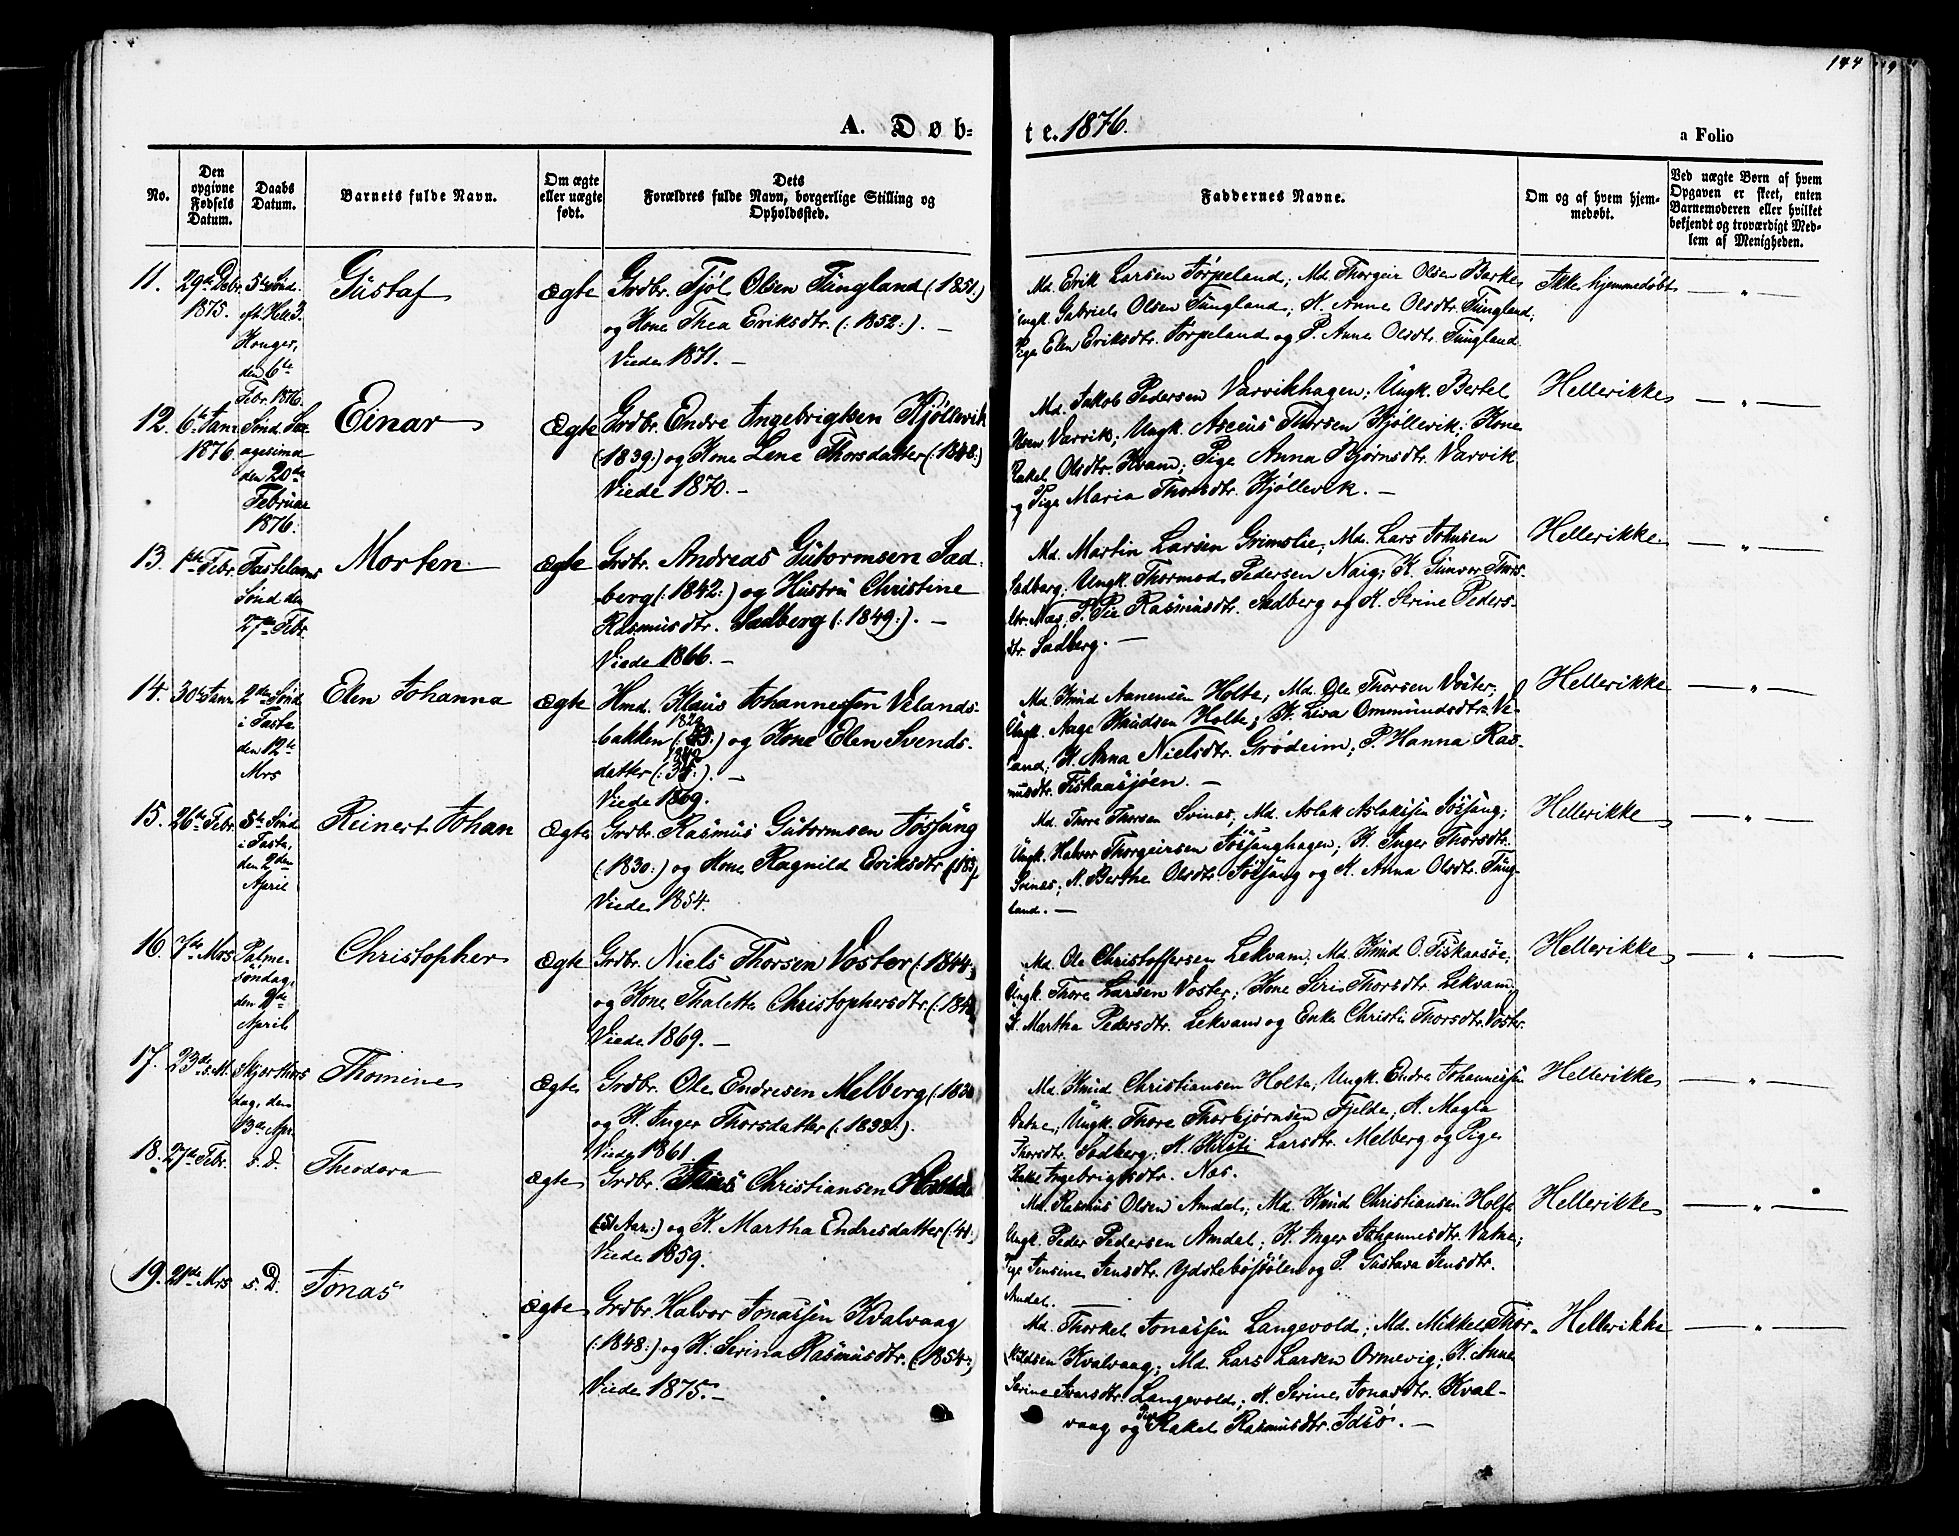 144
A. Døb-
te. 1876.
a Folio
No.
Den opgivne Fødsels Datum.
Daabs Datum.
Barnets fulde Navn.
Om ægte eller uægte født.
Dets Forældres fulde Navn, borgerlige Stilling og Opholdssted.
Faddernes Navne.
Om og af hvem hjem-
medøbt.
Ved uægte Børn af hvem
Opgaven er skeet, enten
Barnemoderen eller hvilket
bekjendt og troværdigt Med-
lem af Menigheden.
11.
29de Debr.
1875.
5te Sønd.
eft. Hell. 3.
Konger,
den 6te
Febr. 1876.
Gustaf
Ægte
Grdbr. Tjøl Olsen Tungland (:1851:)
og Kone Thea Eriksdtr. (:1852:). —
Viede 1871. —
Md. Erik Larsen Tørpeland; Md. Thorgeir Olsen Barke;
Ungk. Gabriel Olsen Tungland; K. Anne Olsdtr. Tungland;
Pige Elen Eriksdtr. Tørpeland og P. Anne Olsdtr. Tungland.
Ikke hjemmedøbt
— " —
12.
6te Janr
1876.
Sønd. Sex
agesima
den 20de
Februar
1876.
Einar
Ægte
Grdbr. Endre Ingebrigtsen Kjøllevik
(1839:) og Kone Lene Thorsdatter (:1848:)
Viede 1870. —
Md. Jakob Pedersen Varvikhagen; Ungk. Bertel
Olsen Varvik; Ungk. Ascius Thorsen Kjøllevik; Kone
Rakel Olsdtr. Kvam; Pige Anna Bjørnsdtr. Varvik
og Pige Maria Thorsdtr. Kjøllevik. —
Hellerikke
— " —
13.
1ste Febr.
Fastelavns
Sønd. den
27de Febr.
Morten
Ægte
Grdbr. Andreas Gutormsen Sad-
berg (:1842:) og Hustru Christine
Rasmusdtr. Sadberg (:1849:). —
Viede 1866. —
Md. Martin Larsen Grimslie; Md. Lars Johnsen
Sadberg; Ungk. Thormod Pedersen Naig; K. Gunvor Thors-
dtr. Næs; P. Pie Rasmusdtr. Sadberg og K. Serine Peders-
dtr. Sadberg. —
Hellerikke
— " —
14.
30te Janr.
2den Sønd
i Faste
den 12te
Mrs
Elen Johanna
Ægte
Hmd. Klaus Johannessen Velands-
bakken (: :) og Kone Elen Svends-
datter (: :). —
Viede 1869.
Md. Knud Aanensen Holte; Md. Ole Thorsen Voster;
Ungk. Aage Knudsen Holte; K. Liva Ommundsdtr. Ve-
land; K. Anna Nielsdtr. Grødeim; P. Hanna Ras-
musdtr. Fiskaasjøen. —
Hellerikke
— " —
15.
26de Febr.
5te Sønd
i Faste,
den 2den
April
Reinert Johan
Ægte
Grdbr. Rasmus Gutormsen Jøsjang
(1830:) og Kone Ragnild Eriksdtr.
Viede 1854.
Md. Thore Thorsen Svines; Md. Aslak Aslaksen Jøsjang;
Ungk. Halvor Thorgeirsen Jøsjanghagen; K. Inger Thorsdtr.
Svines; K. Berthe Olsdtr. Jøsjang og K. Anna Olsdtr. Tung-
land. —
Hellerikke
— " —
16.
7de Mrs
Palme-
søndag,
den 9de
April
Christopher
Ægte
Grdbr. Niels Thorsen Voster (:1844:
og Kone Thalette Christophersdtr.
Viede 1869. —
Md. Ole Christoffersen Lekvam; Md. Knud O. Fiskaasøe;
Ungk. Thore Larsen Voster; Kone Siri Thorsdtr. Lekvam;
K. Martha Pedersdtr. Lekvam og Enke Christi Thorsdtr. Voster.
Hellerikke
— " —
17.
23de s. M.
Skjærthors
dag, den
13de Apr.
Thomine
Ægte
Grdbr. Ole Endresen Melberg (:1830
og K. Inger Thorsdatter (:1838:).
Viede 1861.
Md. Knud Christiansen Holte; Ungk. Endre Johannessen
Vatne; Ungk. Thore Thorbjørnsen Fjelde; K. Magla
Thorsdtr. Sadberg; K. Kirsti Larsdtr. Melberg og Pige
Rakel Ingebrigtsdtr. Næs.
Hellerikke
— " —
18.
27de Febr.
s. D.
Theodora
Ægte
Grdbr. Christiansen
(51 Aar:) og K. Martha Endresdatter (:41:)
Viede 1859.
Md. Rasmus Olsen Amdal; Md. Knud Christiansen Holte
Ungk. Peder Pedersen Amdal; K. Inger Johannesdtr. Vatne;
Pige Jensine Jensdtr. Ydstebøsjølen og P. Gustava Jensdtr.
Amdal.
Hellerikke
— " —
19.
21de Mrs
s. D.
Jonas
Ægte
Grdbr. Halvor Jonassen Kvalvaag
(:1848:) og K. Serina Rasmusdtr. (1854:)
Viede 1875. —
Md. Thorkel Jonassen Langevold; Md. Mikkel Thor-
kildsen Kvalvaag; Md. Lars Larsen Ormevig; K. Anne
Serine Ivarsdtr. Langevold; K. Serine Jonasdtr. Kval-
vaag og Pige Rakel Rasmusdtr. Idsø. —
Hellerikke
— " —